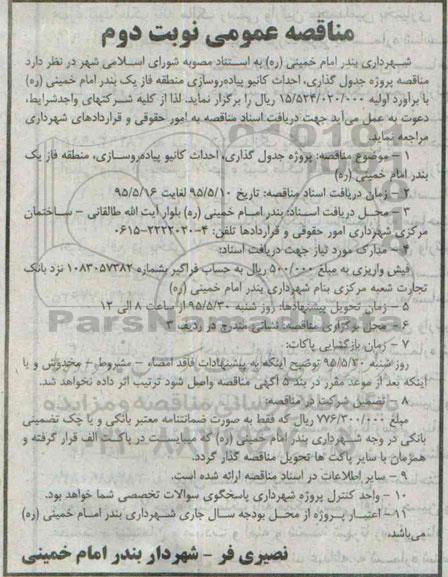 مناقصه عمومی نوبت دوم
شهرداری بندر امام خمینی (ره) به استناد مصوبه شورای اسلامی شهر در نظر دارد
مناقصه پروژه جدول گذاری، احداث کانیو پیاده‌روسازی منطقه فاز یک بندر امام خمینی (ره)
با برآورد اولیه ۱۵/۵۲۴/۰۲۰/۰۰۰ ریال را برگزار نماید. لذا از کلیه شرکتهای واجدشرایط،
دعوت به عمل می‌آید جهت دریافت اسناد مناقصه به امور حقوقی و قراردادهای شهرداری
مراجعه نماید.
۱ – موضوع مناقصه: پروژه جدول گذاری، احداث کانیو پیاده‌روسازی، منطقه فاز یک
بندر امام خمینی (ره)
۲ – زمان دریافت اسناد مناقصه: تاریخ ۹۵/۵/۱۰ لغایت ۹۵/۵/۱۶
۳ – محل دریافت اسناد: بندر امام خمینی (ره) بلوار آیت الله طالقانی – ساختمان
مرکزی شهرداری امور حقوقی و قراردادها تلفن: ۴–۲۲۲۲۰۲۰–۰۶۱۵
۴ – مدارک مورد نیاز جهت دریافت اسناد:
فیش واریزی به مبلغ ۵۰۰/۰۰۰ ریال به حساب فراگیر بشماره ۱۰۸۳۰۵۷۳۸۲ نزد بانک
تجارت شعبه مرکزی بنام شهرداری بندر امام خمینی (ره)
۵ – زمان تحویل پیشنهادها: روز شنبه ۹۵/۵/۳۰ از ساعت ۸ الی ۱۲
۶ – محل برگزاری مناقصه: نشانی مندرج در ردیف ۳
۷ – زمان بازگشایی پاکات:
روز شنبه ۹۵/۵/۳۰ توضیح اینکه به پیشنهادات فاقد امضاء – مشروط – مخدوش و یا
اینکه بعد از موعد مقرر در بند ۵ آگهی مناقصه واصل شود ترتیب اثر داده نخواهد شد.
۸ – تضمین شرکت در مناقصه:
مبلغ ۷۷۶/۳۰۰/۰۰۰ ریال که فقط به صورت ضمانتنامه معتبر بانکی و یا چک تضمینی
بانکی در وجه شهرداری بندر امام خمینی (ره) که میبایست در پاکت الف قرار گرفته و
همزمان با سایر پاکت ها تحویل مناقصه گذار گردد.
۹ – سایر اطلاعات در اسناد مناقصه ارائه شده است.
۱۰ – واحد کنترل پروژه شهرداری پاسخگوی سوالات تخصصی شما خواهد بود.
۱۱ – اعتبار پروژه از محل بودجه سال جاری شهرداری بندر امام خمینی (ره)
می‌باشد.
نصیری فر – شهردار بندر امام خمینی